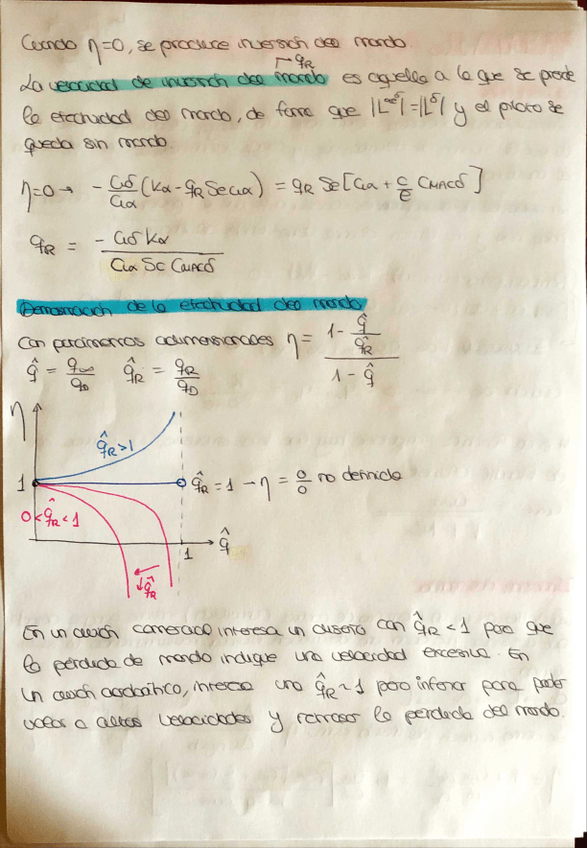 Cuando η=0, se produce inversión del mando.
→ qR
La velocidad de inversión del mando es aquella a la que se pierde
la efectividad del mando, de forma que |L^∞δ| = |L^δ| y el piloto se
queda sin mando.
η=0 → - Clδ/Clα (Kα - qR Se Clα) = qR Se [Clα + c/e CMACδ]
qR = - Clδ Kα / Clα Sc CMACδ
Demostración de la efectividad del mando
Con parámetros adimensionales η = (1 - q̂/q̂R) / (1 - q̂)
q̂ = q∞/qD q̂R = qR/qD
η
q̂R > 1
1
q̂R = 1 → η = 0/0 no definida
0 < q̂R < 1
1
q̂
↓q̂R
En un avión comercial interesa un diseño con q̂R < 1 para que
la pérdida de mando indique una velocidad excesiva. En
un avión acrobático, interesa una q̂R ~ 1 pero inferior para poder
volar a altas velocidades y retrasar la pérdida del mando.